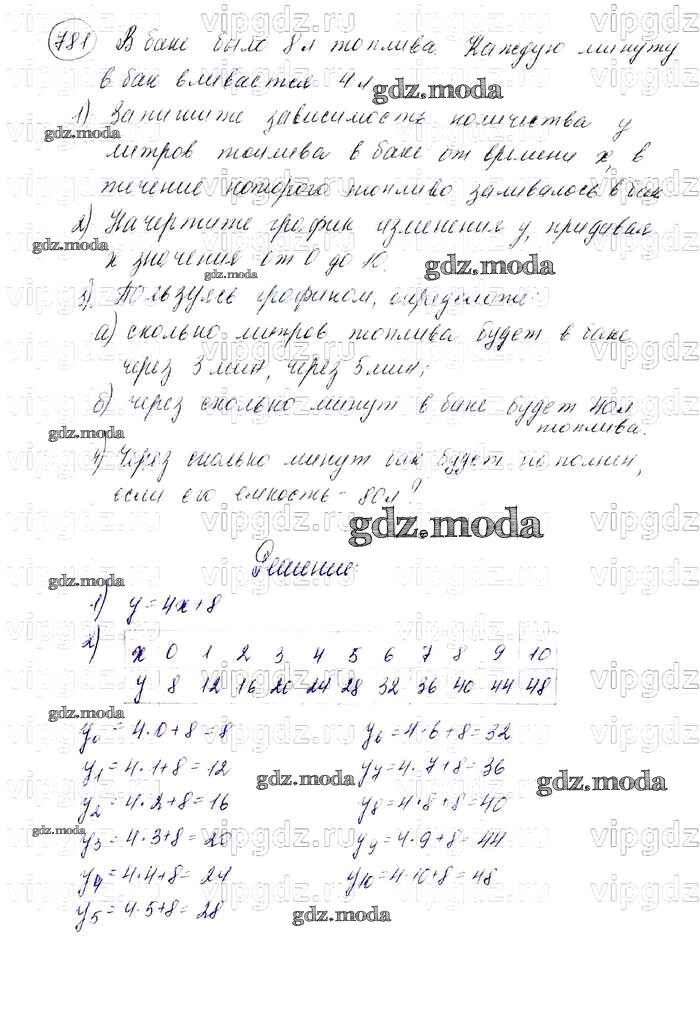 781 В баке было 8 л топлива. Каждую минуту
в бак вливается 4 л
gdz.moda
1) Запишите зависимость количества y
gdz.moda
литров топлива в баке от времени x, в
течение которого топливо заливалось в бак
2) Начертите график изменения y, придавая
gdz.moda
x значения от 0 до 10.
gdz.moda
gdz.moda
3) Пользуясь графиком, определите:
а) сколько литров топлива будет в баке
через 3 мин, через 5 мин;
б) через сколько минут в баке будет 40 л
топлива.
gdz.moda
4) Через сколько минут бак будет наполнен,
если его емкость - 80 л?
gdz.moda
Решение:
gdz.moda
1) y = 4x + 8
2)
x 0 1 2 3 4 5 6 7 8 9 10
y 8 12 16 20 24 28 32 36 40 44 48
gdz.moda
y₀ = 4·0+8 = 8 y₆ = 4·6+8 = 32
y₁ = 4·1+8 = 12 y₇ = 4·7+8 = 36
gdz.moda gdz.moda
y₂ = 4·2+8 = 16 y₈ = 4·8+8 = 40
gdz.moda
y₃ = 4·3+8 = 20 y₉ = 4·9+8 = 44
y₄ = 4·4+8 = 24 y₁₀ = 4·10+8 = 48
y₅ = 4·5+8 = 28
gdz.moda